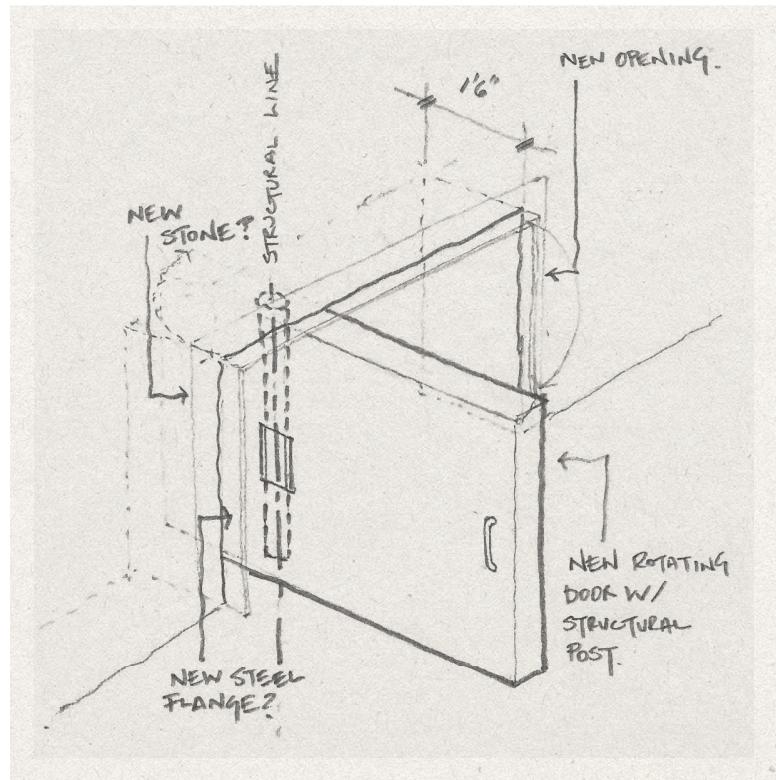 NEW OPENING.
1'6"
STRUCTURAL LINE
NEW
STONE?
NEW ROTATING
DOOR W/
STRUCTURAL
POST.
NEW STEEL
FLANGE?